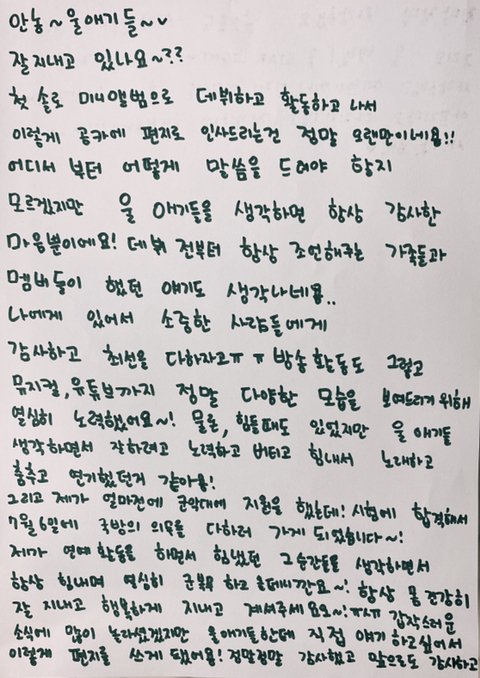 안농~울애기들~
잘지내고 있나요~??
첫 솔로 미니앨범으로 데뷔하고 활동하고 나서
이렇게 공카에 편지로 인사드리는건 정말 오랜만이네욤!!
어디서 부터 어떻게 말씀을 드려야 할지
모르겠지만 울 애기들을 생각하면 항상 감사한
마음뿐이에요! 데뷔 전부터 항상 조언해주는 가족들과
멤버들이 했던 얘기도 생각나네욤..
나에게 있어서 소중한 사람들에게
감사하고 최선을 다하자고ㅠㅠ 방송활동도 그렇고
뮤지컬, 유튜브까지 정말 다양한 모습을 보여드리기위해
열심히 노력했어요~! 물론, 힘들때도 있었지만 울 애기들
생각하면서 잘하려고 노력하고 버티고 힘내서 노래하고
춤추고 연기했던거 같아용!
그리고 제가 얼마전에 군악대에 지원을 했는데! 시험에 합격해서
7월 6일에 국방의 의무를 다하러 가게 되었습니다~!
제가 연예활동을 하면서 힘냈던 그순간들을 생각하면서
항상 힘내며 열심히 군복무 하고 올테니깐요~! 항상 몸 건강히
잘 지내고 행복하게 지내고 계셔주세요오~!ㅠㅅㅠ 갑작스러운
소식에 많이 놀라셨겠지만 울애기들한테 직접 얘기하고싶어서
이렇게 편지를 쓰게 됐어욤! 정말정말 감사했고 앞으로도 감사하고